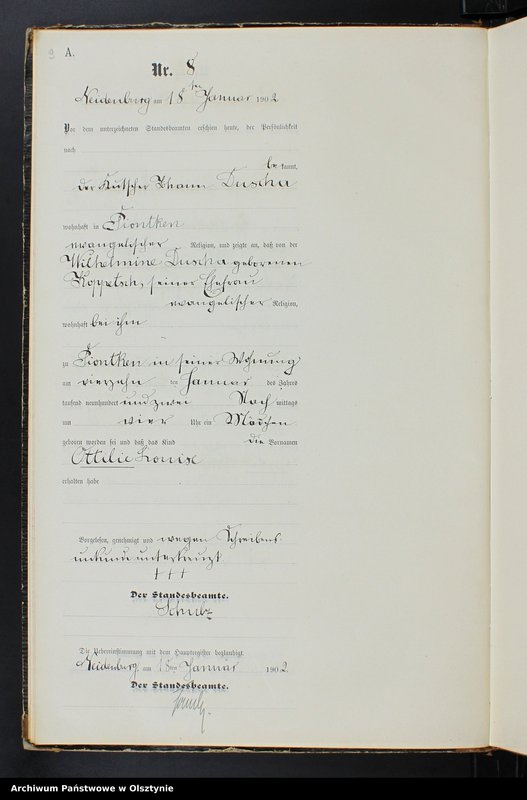 9 A.
Nr. 8
Neidenburg am 18ten Januar 1902
Vor dem unterzeichneten Standesbeamten erschien heute, der Persönlichkeit
nach
bekannt,
der Kutscher Johann Duscha
wohnhaft in Piontken
evangelischer Religion, und zeigte an, daß von der
Wilhelmine Duscha geborenen
Koppetsch, seiner Ehefrau
evangelischer Religion,
wohnhaft bei ihm
zu Piontken in seiner Wohnung
am vierzehn ten Januar des Jahres
tausend neunhundert und zwei Nach mittags
um vier Uhr ein Mädchen
geboren worden sei und daß das Kind die Vornamen
Ottilie Louise
erhalten habe
Vorgelesen, genehmigt und wegen Schreibens
unkunde unterkreuzt
+++
Der Standesbeamte.
Schulz
Die Uebereinstimmung mit dem Hauptregister beglaubigt.
Neidenburg, am 18ten Januar 1902.
Der Standesbeamte.
Schulz.
Archiwum Państwowe w Olsztynie